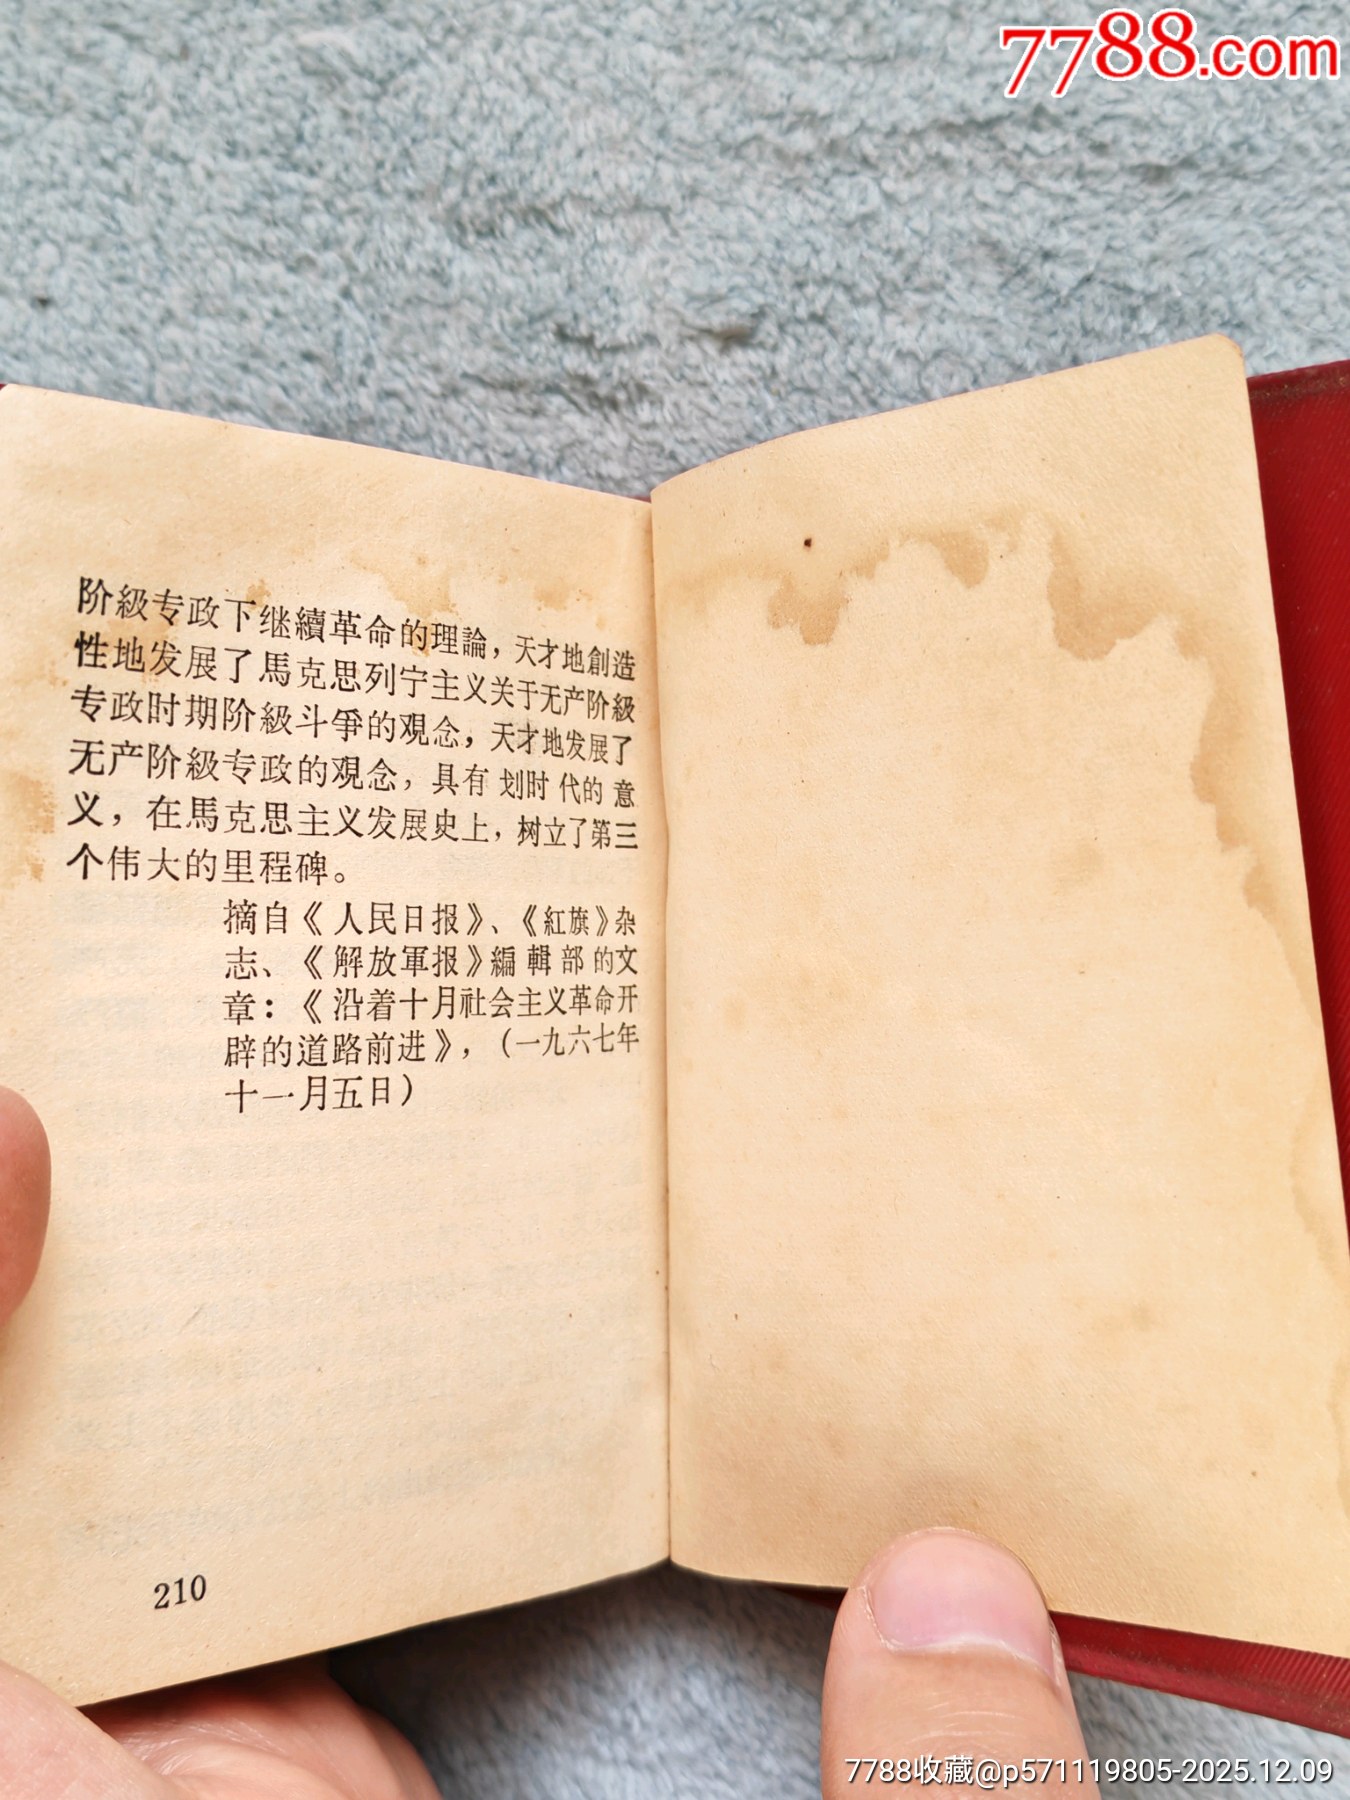 7788.com
阶級专政下继續革命的理論，天才地創造
性地发展了馬克思列宁主义关于无产阶級
专政时期阶級斗爭的覌念，天才地发展了
无产阶級专政的覌念，具有划时代的意
义，在馬克思主义发展史上，树立了第三
个伟大的里程碑。
摘自《人民日报》、《紅旗》杂
志、《解放軍报》編輯部的文
章：《沿着十月社会主义革命开
辟的道路前进》，（一九六七年
十一月五日）
210
7788收藏@p571119805-2025.12.09